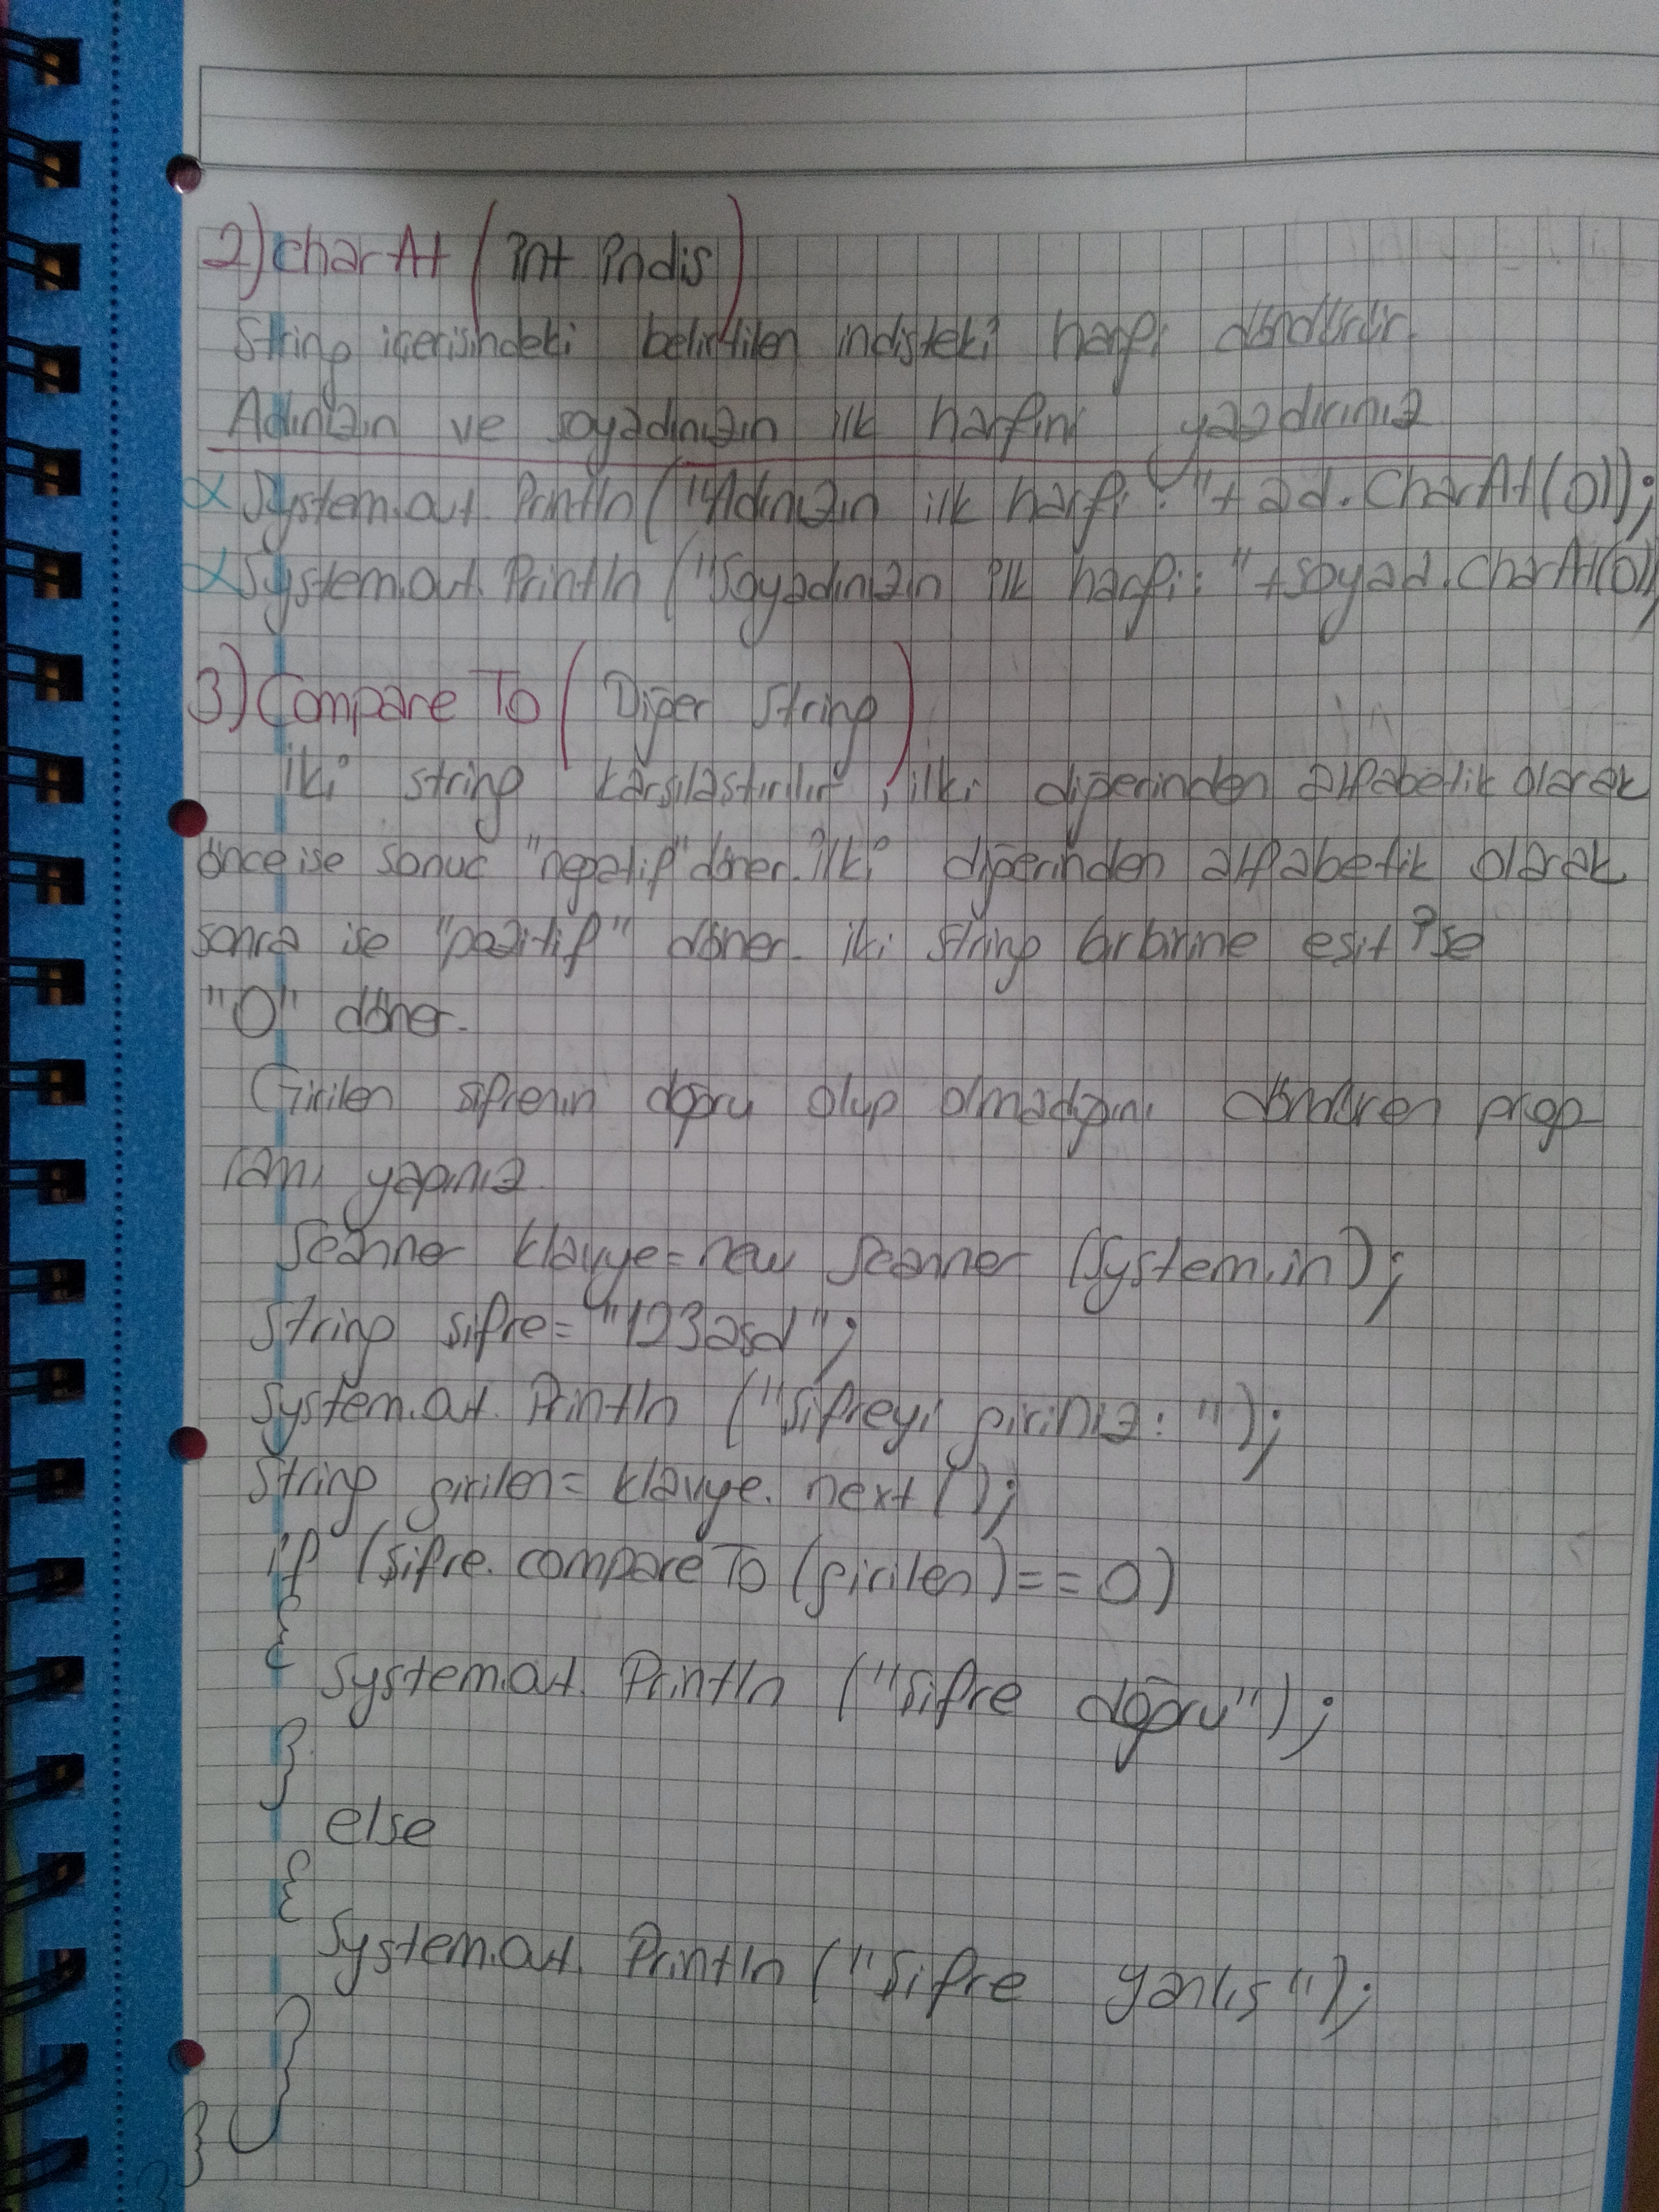 2) charAt (int indis)
String içerisindeki belirtilen indisteki harfi döndürür.
Adınızın ve soyadınızın ilk harfini yazdırınız
System.out.Println("Adınızın ilk harfi: "+ ad.CharAt(0));
System.out.Println("Soyadınızın ilk harfi: "+soyad.CharAt(0));
3) Compare To (Diğer String)
iki string karşılastırılır, ilki diğerinden alfabetik olarak
önce ise sonuc "negatif" döner. ilki diğerinden alfabetik olarak
sonra ise "pozitif" döner. iki string birbirine esit ise
"0" döner.
Girilen sifrenin doğru olup olmadığını döndüren prog
ramı yapınız
Scanner klavye=new Scanner (System.in);
String sifre="123asd";
System.out.Println ("Sifreyi giriniz: ");
String girilen= klavye.next();
if (sifre.compareTo (girilen)==0)
{
System.out.Println ("Sifre doğru");
}
else
{
System.out.Println ("Sifre yanlıs");
}
}